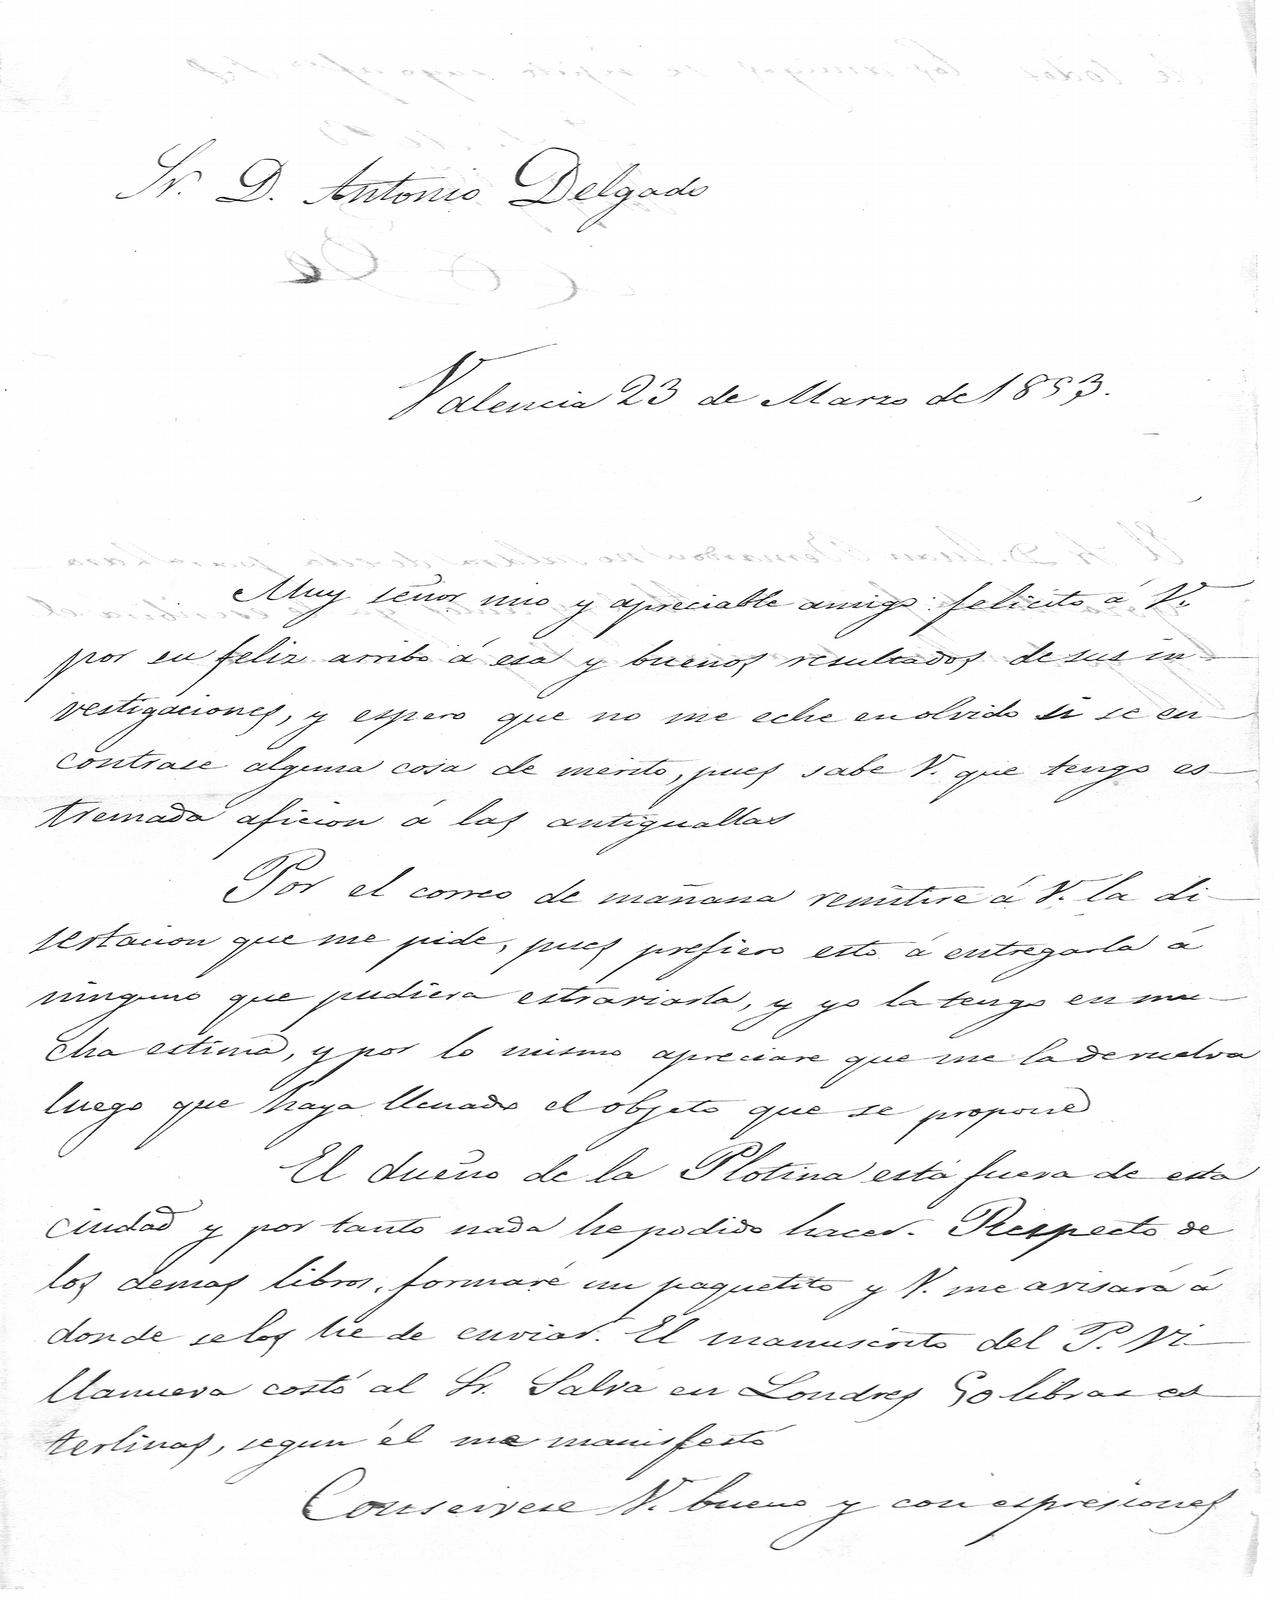 Sr. D. Antonio Delgado
Valencia 23 de Marzo de 1853.
Muy señor mio y apreciable amigo: felicito á V.
por su feliz arribo á esa y buenos resultados de sus in-
vestigaciones, y espero que no me eche en olvido si se en-
contrase alguna cosa de merito, pues sabe V. que tengo es-
tremada aficion á las antiguallas
Por el correo de mañana remitire á V. la di-
sertacion que me pide, pues prefiero esto á entregarla á
ninguno que pudiera estraviarla, y yo la tengo en mu-
cha estima, y por lo mismo apreciare que me la devuelva
luego que haya llenado el objeto que se propone
El dueño de la Plotina está fuera de esta
ciudad y por tanto nada he podido hacer. Respecto de
los demas libros, formaré un paquetito y V. me avisará á
donde se los he de enviar. El manuscrito del P. Vi-
llanueva costó al Sr. Salvá en Londres 50 libras es-
terlinas, segun él me manisfestó
Conservese V. bueno y con espresiones